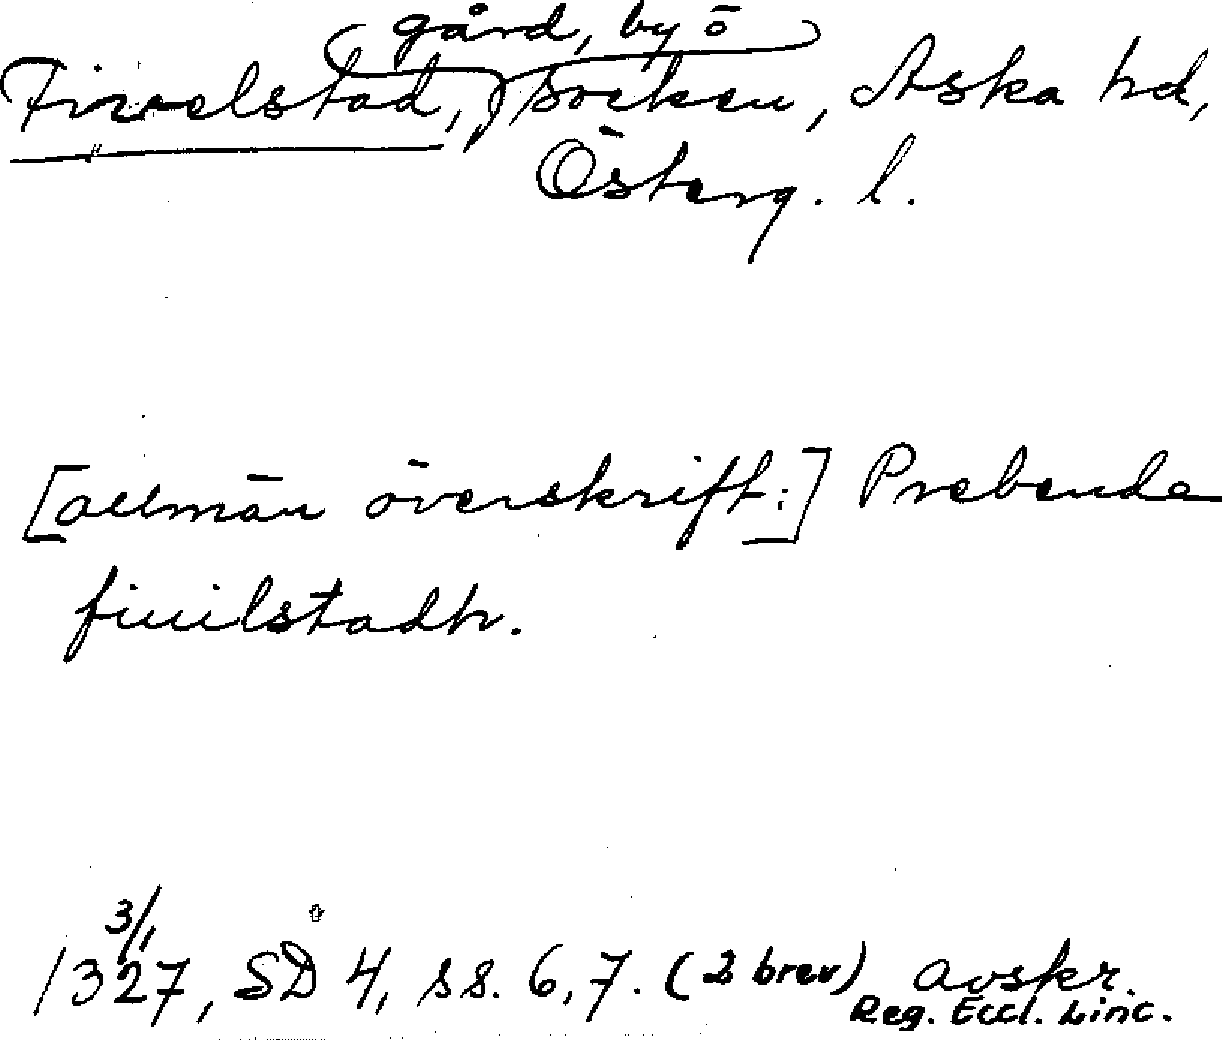 gård, by ö
Fivelstad, socken, Aska hd,
Österg. l.
[allmän överskrift:] Prebenda
fiuilstadh.
3/1
1327, SD 4, ss. 6, 7. (2 brev) avskr.
Reg. Eccl. Linc.